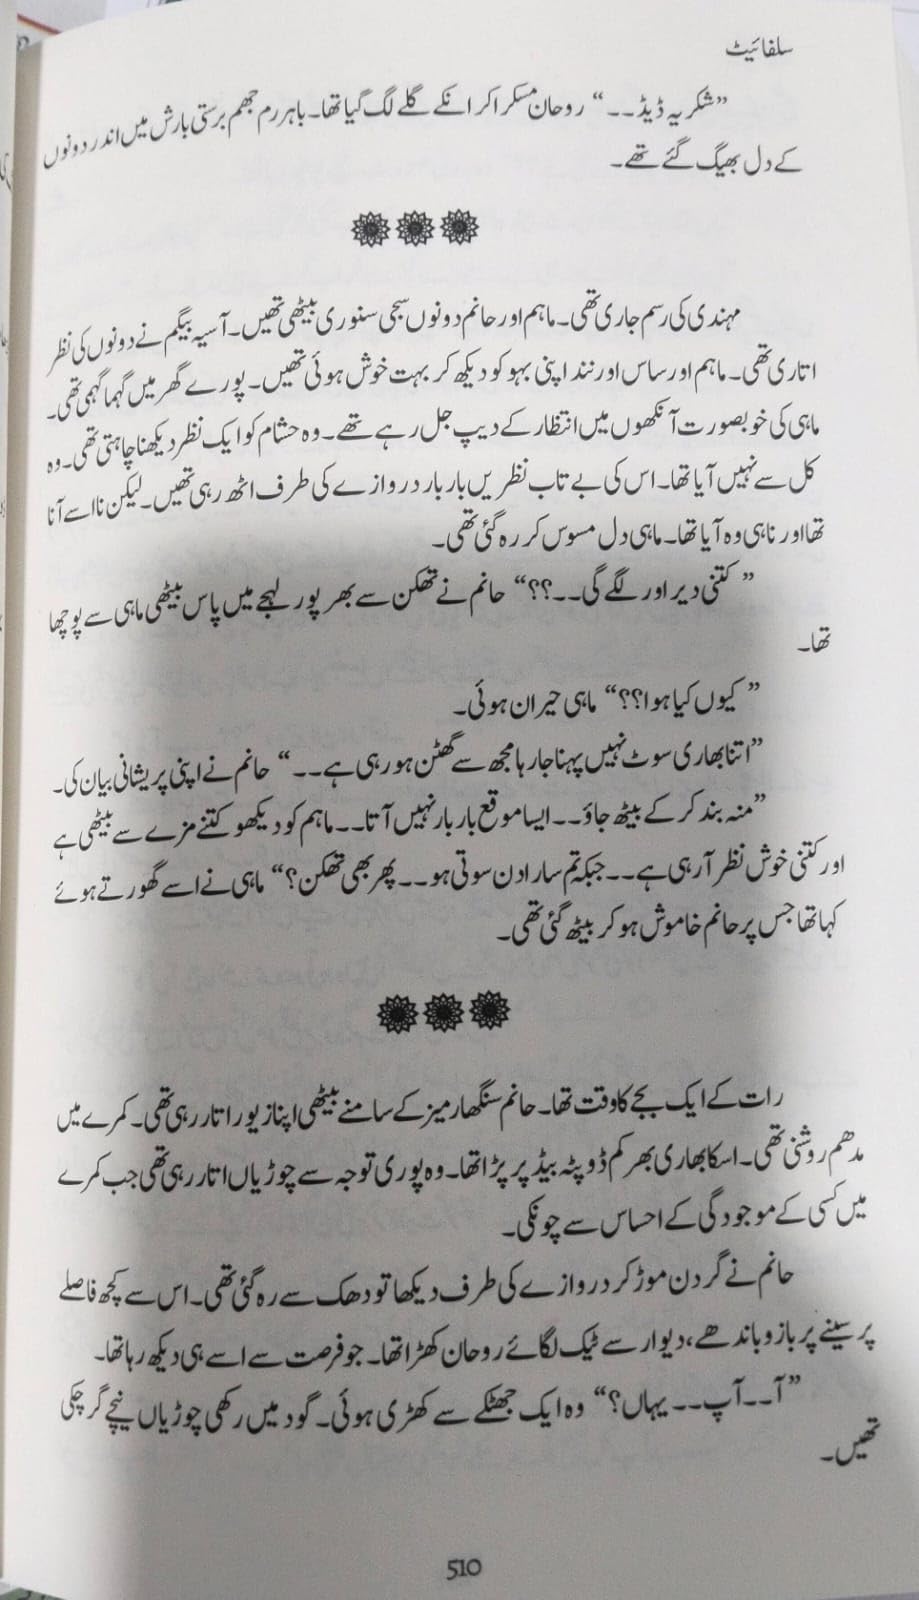 سلفائیٹ
”شکریہ ڈیڈ۔۔“ روحان مسکرا کر انکے گلے لگ گیا تھا۔ باہر رم جھم برستی بارش میں اندر دونوں
کے دل بھیگ گئے تھے۔
مہندی کی رسم جاری تھی۔ ماہم اور حانم دونوں سجی سنوری بیٹھی تھیں۔ آسیہ بیگم نے دونوں کی نظر
اتاری تھی۔ ماہم اور ساس اور نند اپنی بہو کو دیکھ کر بہت خوش ہوئی تھیں۔ پورے گھر میں گہما گہمی تھی۔
ماہی کی خوبصورت آنکھوں میں انتظار کے دیپ جل رہے تھے۔ وہ حشام کو ایک نظر دیکھنا چاہتی تھی۔ وہ
کل سے نہیں آیا تھا۔ اس کی بے تاب نظریں بار بار دروازے کی طرف اٹھ رہی تھیں۔ لیکن نا اسے آنا
تھا اور نا ہی وہ آیا تھا۔ ماہی دل مسوس کر رہ گئی تھی۔
”کتنی دیر اور لگے گی۔۔؟؟“ حانم نے تھکن سے بھرپور لہجے میں پاس بیٹھی ماہی سے پوچھا
تھا۔
”کیوں کیا ہوا؟؟“ ماہی حیران ہوئی۔
”اتنا بھاری سوٹ نہیں پہنا جا رہا مجھ سے گھٹن ہو رہی ہے۔۔“ حانم نے اپنی پریشانی بیان کی۔
”منہ بند کر کے بیٹھ جاؤ۔۔ ایسا موقع بار بار نہیں آتا۔۔ ماہم کو دیکھو کتنے مزے سے بیٹھی ہے
اور کتنی خوش نظر آرہی ہے۔۔ جبکہ تم سارا دن سوتی ہو۔۔ پھر بھی تھکن؟“ ماہی نے اسے گھورتے ہوئے
کہا تھا جس پر حانم خاموش ہو کر بیٹھ گئی تھی۔
رات کے ایک بجے کا وقت تھا۔ حانم سنگھار میز کے سامنے بیٹھی اپنا زیور اتار رہی تھی۔ کمرے میں
مدھم روشنی تھی۔ اسکا بھاری بھر کم ڈوپٹہ بیڈ پر پڑا تھا۔ وہ پوری توجہ سے چوڑیاں اتار رہی تھی جب کمرے
میں کسی کے موجودگی کے احساس سے چونکی۔
حانم نے گردن موڑ کر دروازے کی طرف دیکھا تو دھک سے رہ گئی تھی۔ اس سے کچھ فاصلے
پر سینے پر بازو باندھے، دیوار سے ٹیک لگائے روحان کھڑا تھا۔ جو فرصت سے اسے ہی دیکھ رہا تھا۔
”آ۔۔آپ۔۔ یہاں؟“ وہ ایک جھٹکے سے کھڑی ہوئی۔ گود میں رکھی چوڑیاں نیچے گر چکی
تھیں۔
510